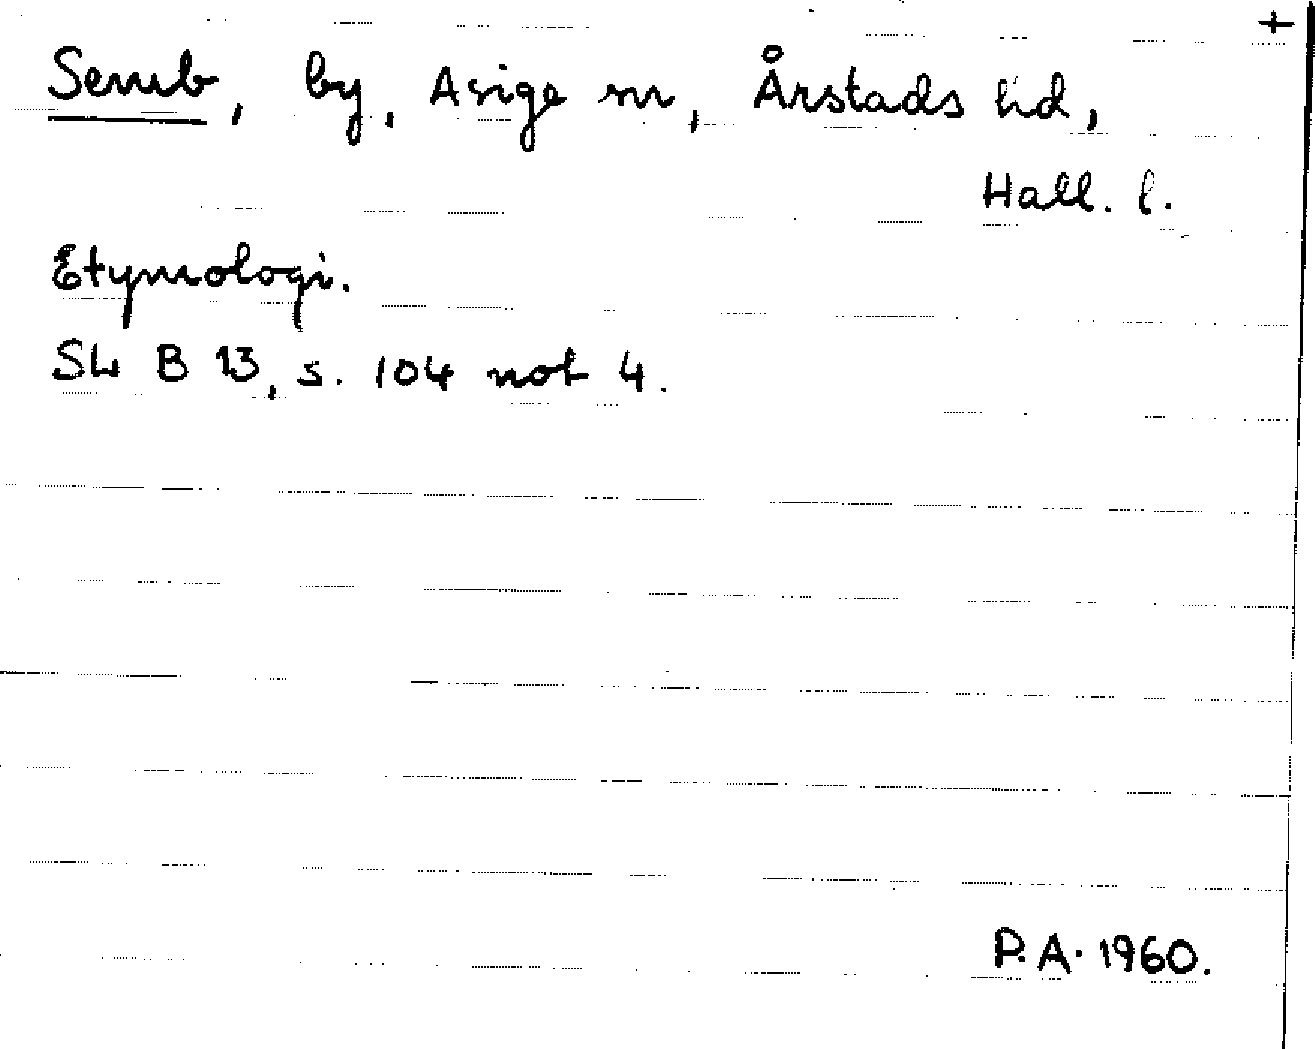 +
Semb, by, Asige sn, Årstads hd,
Hall. l.
Etymologi.
SH B 13, s. 104 not 4.
P.A. 1960.